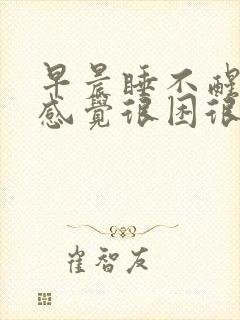 早晨睡不醒
感覺很困很
崔智友